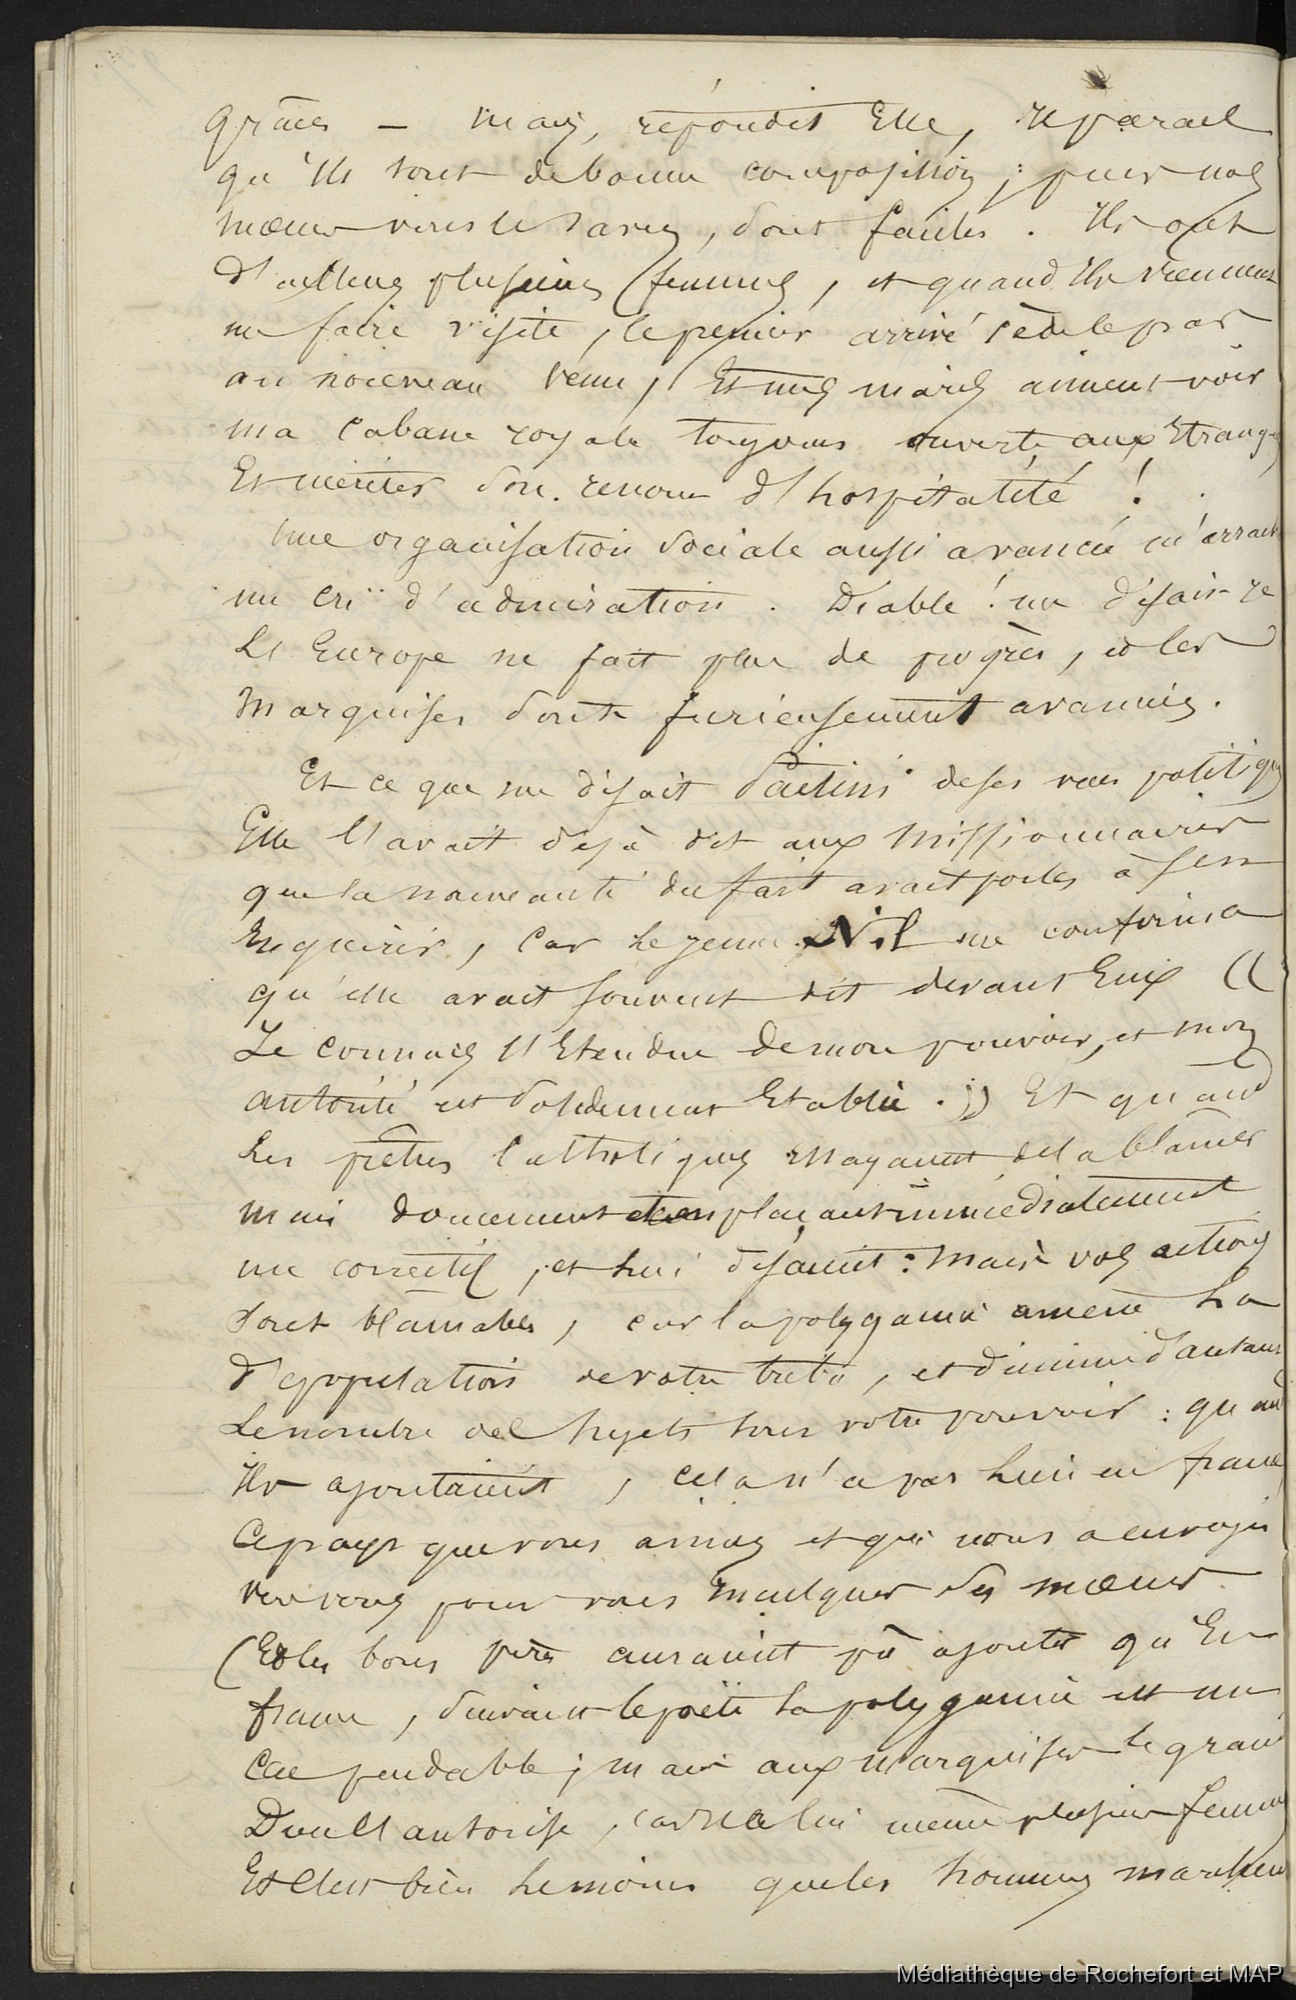 grâces – mais, répondit Elle, Il parait
qu'ils sont de bonne composition ; puis nos
moeurs vous le savez, sont faciles. Ils ont
d'ailleurs plusieurs femmes, et quand Ils viennent
me faire visite, le premier arrivé cède le pas
au nouveau venu, Et mes maris aiment voir
ma cabane royale toujours ouverte aux Etrangers
Et mériter son renom d'hospitalité !
Une organisation Sociale aussi avancée m'arracha
un cri d'admiration. Diable ! me disais-je
L'Europe ne fait plus de progrès, et les
Marquises sont furieusement avancées.
Et ce que me disait Vaetini de ses vues politiques
Elle l'avait déjà dit aux Missionnaires
que la nouveauté du fait avait portés à s'en
Enquérir, car le jeune Nil me confirma
qu'elle avait souvent dit devant Eux ((
Je connais l'Etendue de mon pouvoir, et mon
autorité est solidement Etablie. )) Et quand
Les prêtres Catholiques essayaient de la blâmer
mais doucement et en plaçant immédiatement
un correctif, et lui disaient : Mais vos actions
sont blâmables, car la polygamie amène La
dépopulation de votre tribu, et diminue d'autant
Le nombre des Sujets sous votre pouvoir : quand
Ils ajoutaient, cela n'a pas lieu en france
Ce pays que vous aimez et qui nous a envoyés
vers vous pour vous Inculquer Ses moeurs
(Et les bons pères auraient pû ajouter qu'En
france, suivant le poëte La polygamie est un
Cas pendable ; mais aux Marquises le grand
Dieu l'autorise, car Il a lui même plusieurs femmes
Et C'est bien Le moins que les hommes marchent